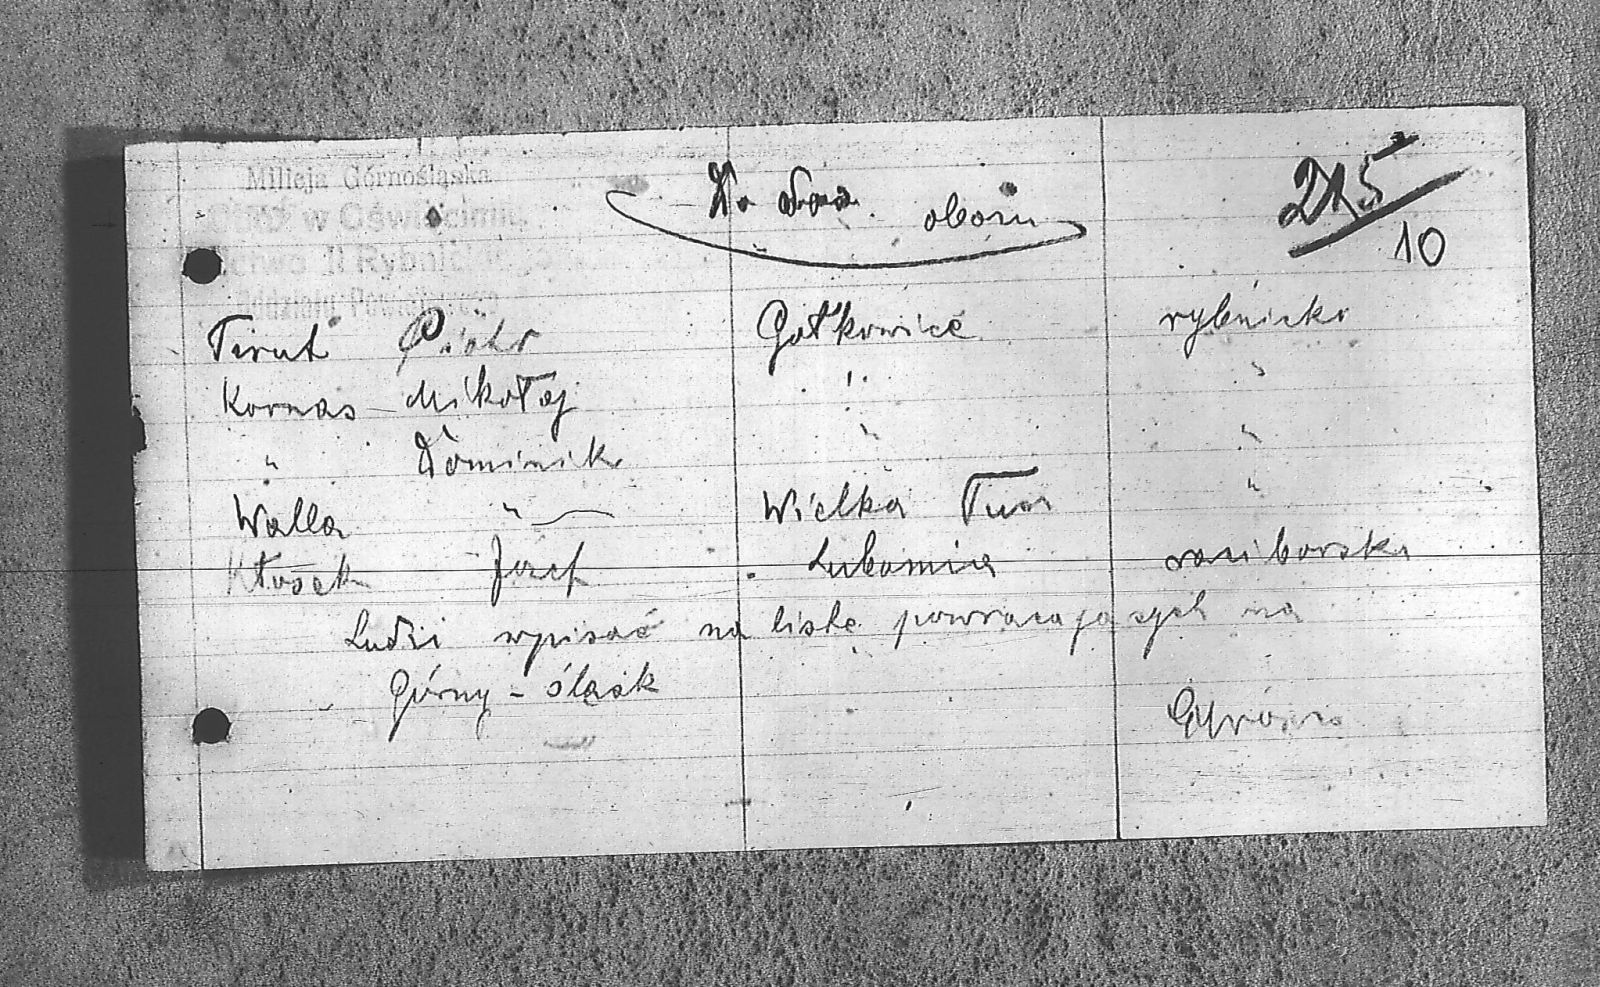 Milicja Górnośląska
Obóz w Oświęcimiu
II Rybnickie
Oddziału Powiatowego
Do obozu
215
10
Piotr Gotkowice rybnicka
Kornas Mikołaj " "
" Dominik " "
Walla " Wielka Tura "
Kłosek Józef Lubomia raciborska
Ludzi wpisać na listę powracających na
Górny-Śląsk